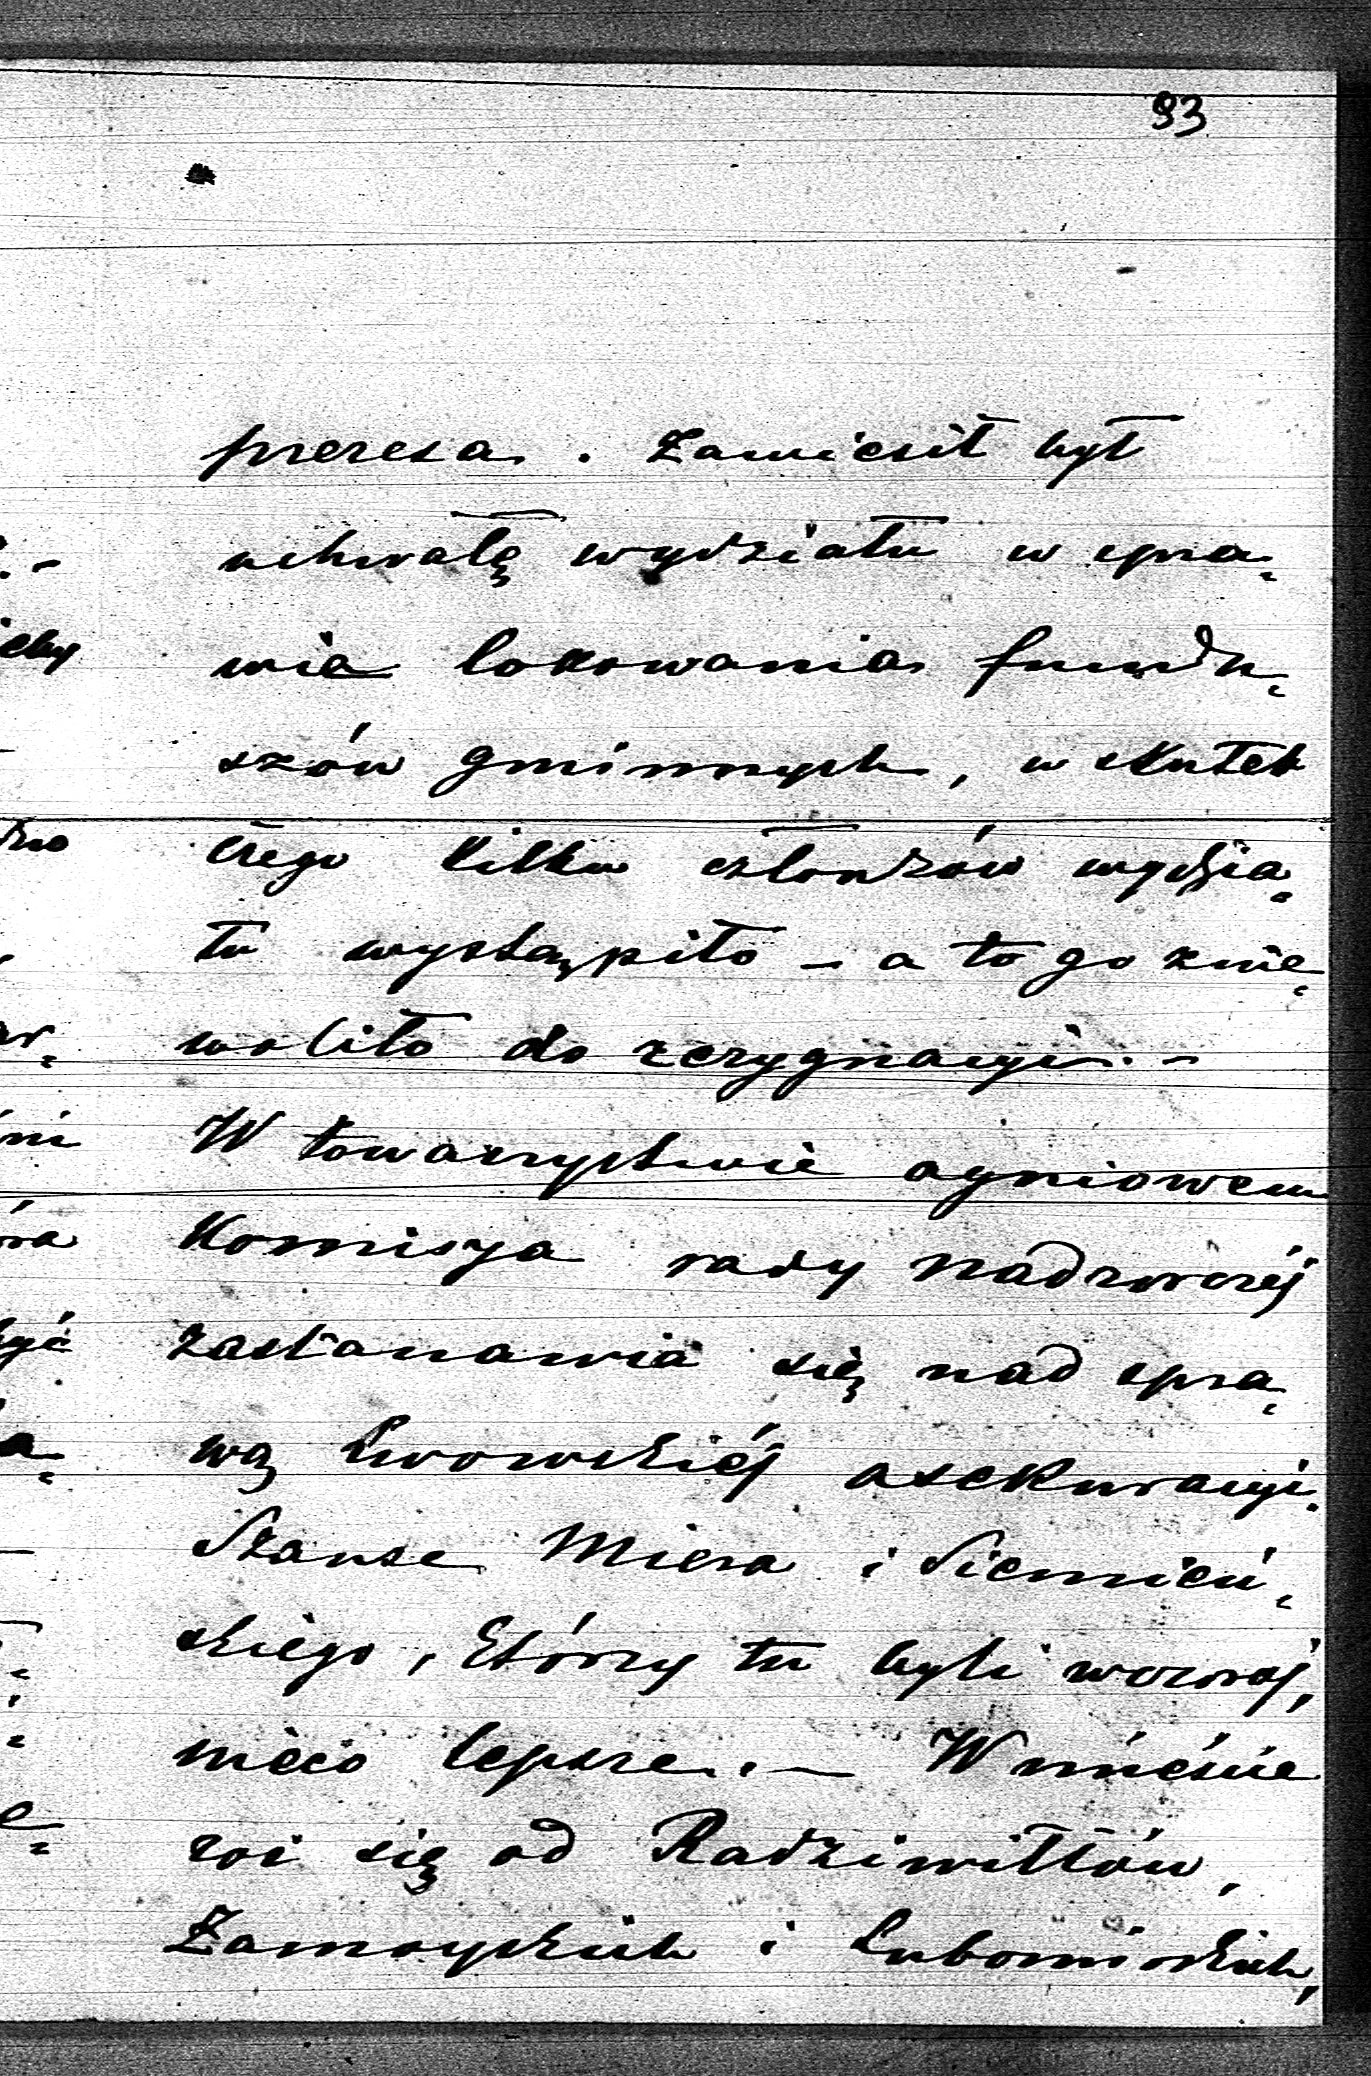 93
prezesa. Zawiesił był
uchwałę wydziału w spra-
wie lokowania fundu-
szów gminnych, w skutek
czego kilku członków wydzia-
łu wystąpiło – a to go znie-
woliło do rezygnacyi. –
W towarzystwie ogniowem
Komisya rady nadzorczéj
zastanawia się nad spra-
wą Lwowskiéj asekuracyi.
Szanse Miera i Siemień-
skiego, którzy tu byli wczoraj,
nieco lepsze. – W mieście
roi się od Radziwiłłów,
Zamoyskich i Lubomirskich,